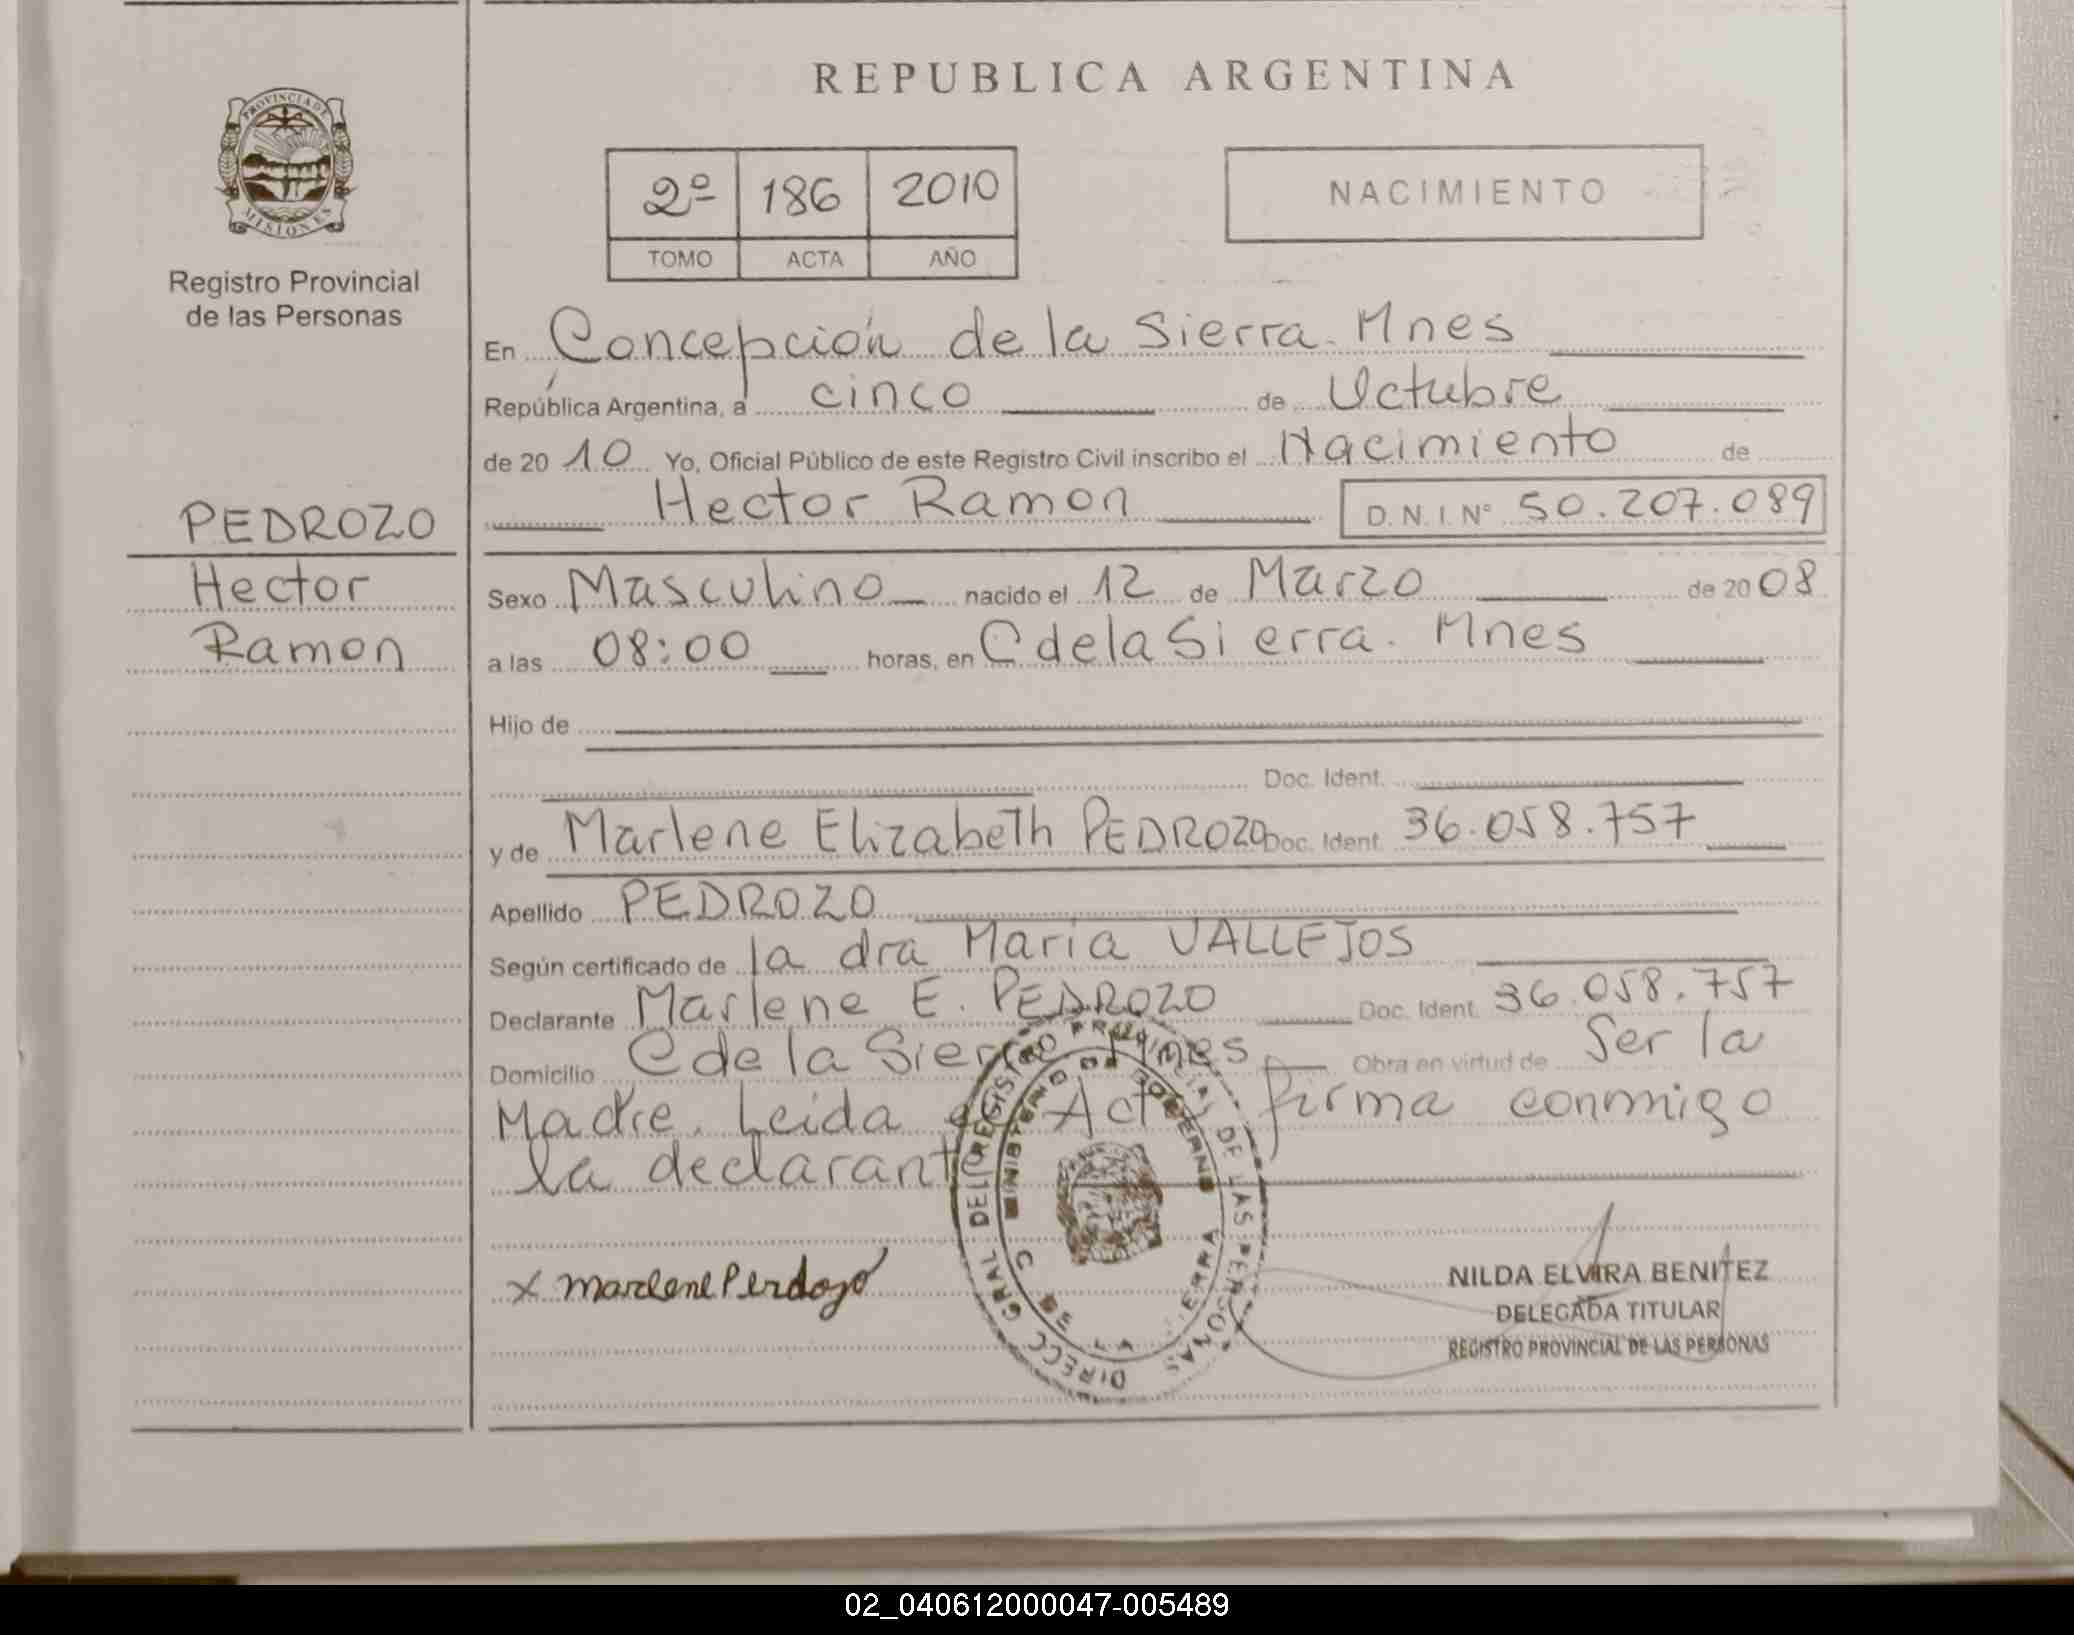 REPUBLICA ARGENTINA
PROVINCIA DE
MISIONES
Registro Provincial
de las Personas
2º 186 2010
TOMO ACTA AÑO
NACIMIENTO
En Concepción de la Sierra. Mnes
República Argentina, a cinco de Octubre
de 2010 Yo, Oficial Público de este Registro Civil inscribo el Nacimiento de
Hector Ramon D.N.I. Nº 50.207.089
PEDROZO
Hector
Ramon
Sexo Masculino nacido el 12 de Marzo de 2008
a las 08:00 horas, en C de la Sierra. Mnes
Hijo de
Doc. Ident.
y de Marlene Elizabeth PEDROZO Doc. Ident. 36.058.757
Apellido PEDROZO
Según certificado de la dra Maria VALLEJOS
Declarante Marlene E. PEDROZO Doc. Ident. 36.058.757
Domicilio C de la Sierra Mnes Obra en virtud de Ser la
Madre. Leida el Acta firma conmigo
la declarante
x Marlene Perdozo
DIRECC GRAL DEL REGISTRO PROVINCIAL DE LAS PERSONAS
MINISTERIO DE GOBIERNO
NILDA ELVIRA BENITEZ
DELEGADA TITULAR
REGISTRO PROVINCIAL DE LAS PERSONAS
02_040612000047-005489